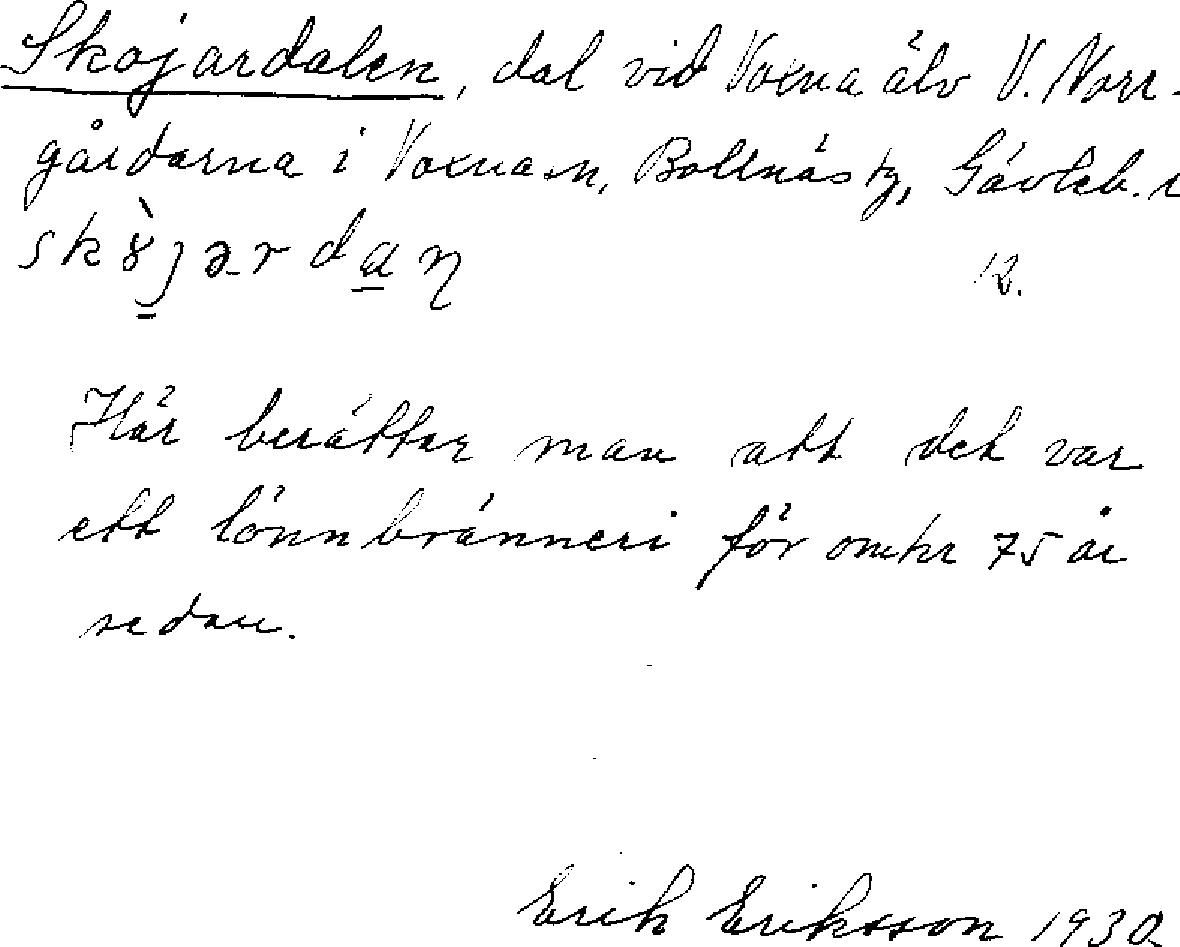 Skojardalen, dal vid Voxna älv V. Norr-
gårdarna i Voxna sn, Bollnäs tg, Gävleb. l
12.
Här berättar man att det var
ett lönnbränneri för omkr 75 år
sedan.
Erik Eriksson 1930